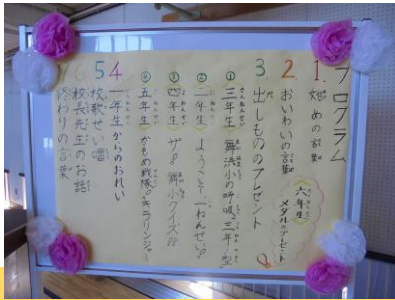 プログラム
1. 始めの言葉
2. おいわいの言葉
六年生
メダルのプレゼント
3. 出しもののプレゼント
① 三年生 舞浜小の呼吸 三年ノ型
② 二年生 ようこそ一ねんせい!!
③ 四年生 ザ・舞小クイズ!!
④ 五年生 かもめ戦隊 キラリンジャー
4 一年生からのおれい
5 校歌せい唱
6 校長先生のお話
7 終わりの言葉